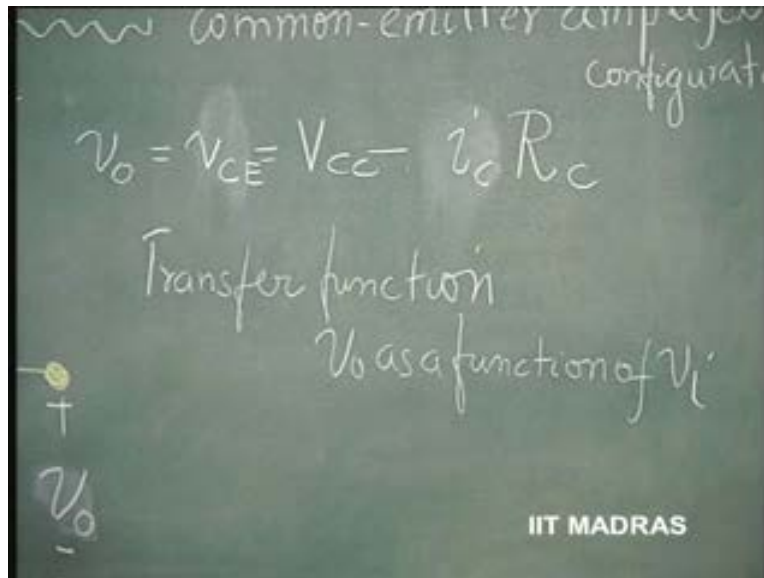 common-emitter amplifier
configurat
v₀ = v_CE = V_CC - i_C R_C
Transfer function
v₀ as a function of v_i
+
v₀
-
IIT MADRAS